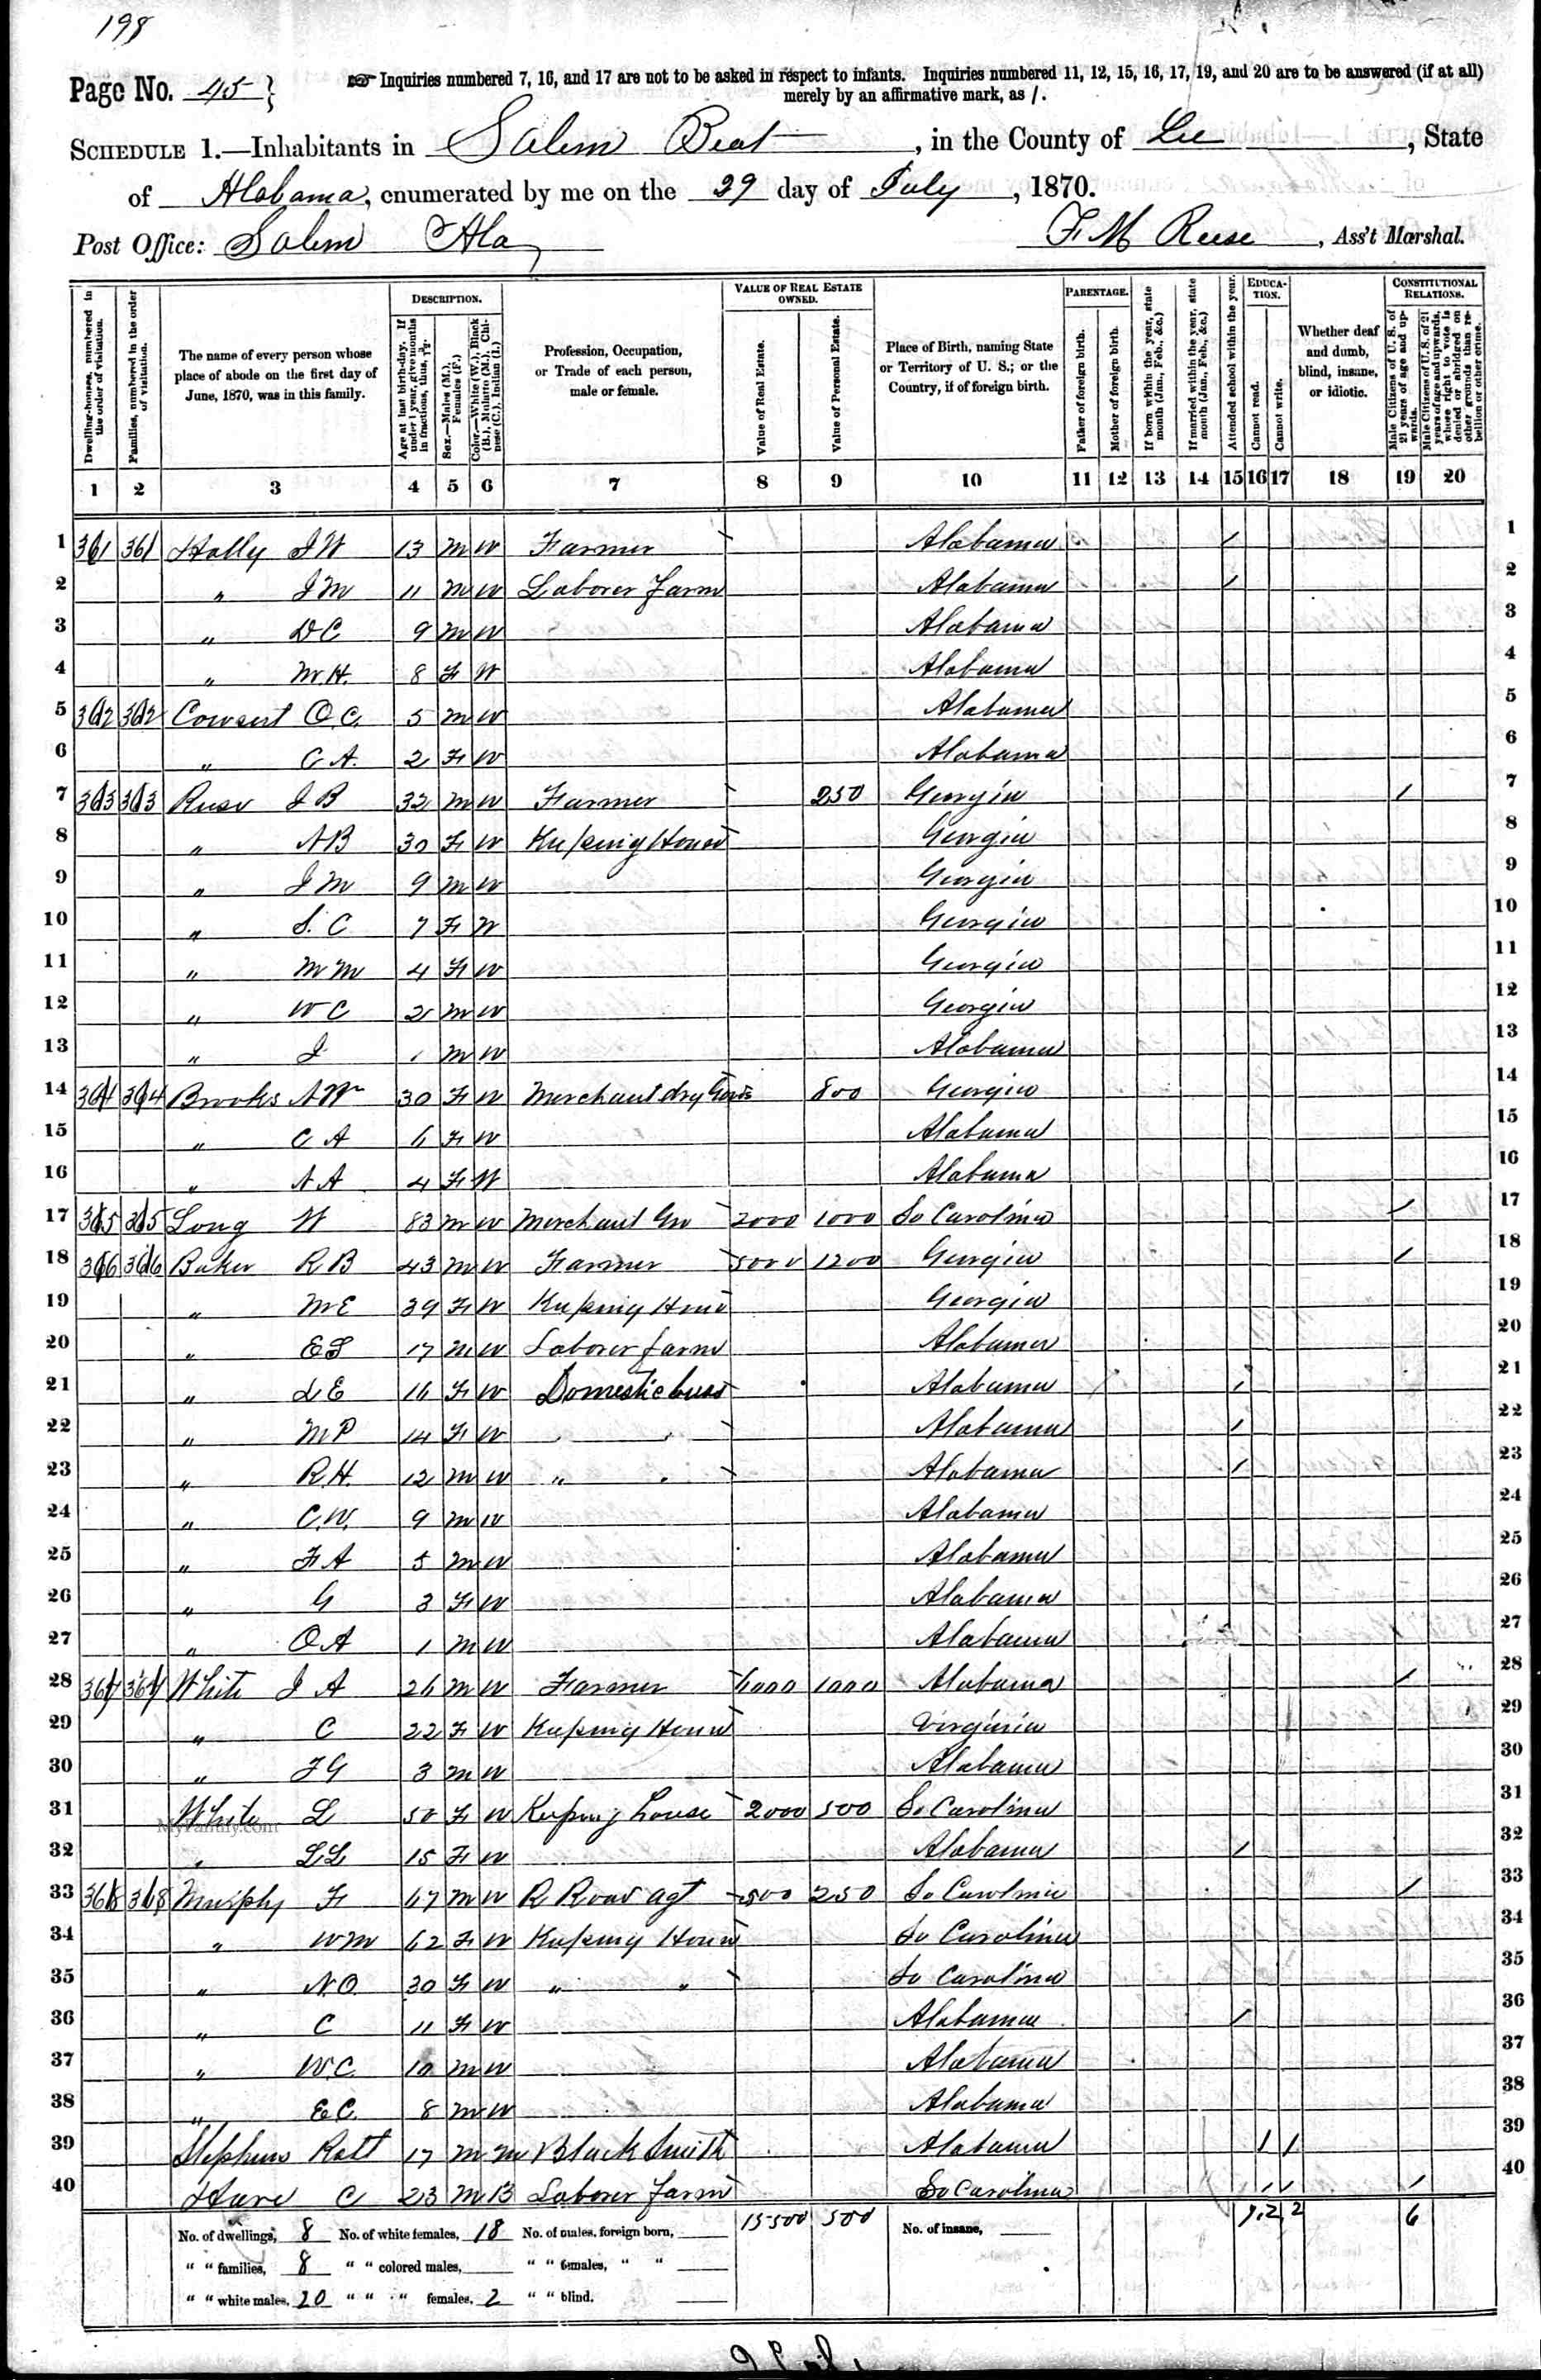 198
Page No. 45
☞ Inquiries numbered 7, 16, and 17 are not to be asked in respect to infants. Inquiries numbered 11, 12, 15, 16, 17, 19, and 20 are to be answered (if at all)
merely by an affirmative mark, as /.
SCHEDULE 1.—Inhabitants in Salem Beat, in the County of Lee, State
of Alabama, enumerated by me on the 29 day of July, 1870.
Post Office: Salem Ala F M Reese, Ass't Marshal.
Dwelling-houses, numbered in the order of visitation.
Families, numbered in the order of visitation.
The name of every person whose place of abode on the first day of June, 1870, was in this family.
DESCRIPTION.
Age at last birth-day. If under 1 year, give months in fractions, thus, 3/12.
Sex.—Males (M.), Females (F.)
Color.—White (W.), Black (B.), Mulatto (M.), Chinese (C.), Indian (I.)
Profession, Occupation, or Trade of each person, male or female.
VALUE OF REAL ESTATE OWNED.
Value of Real Estate.
Value of Personal Estate.
Place of Birth, naming State or Territory of U. S.; or the Country, if of foreign birth.
PARENTAGE.
Father of foreign birth.
Mother of foreign birth.
If born within the year, state month (Jan., Feb., &c.)
If married within the year, state month (Jan., Feb., &c.)
Attended school within the year.
EDUCATION.
Cannot read.
Cannot write.
Whether deaf and dumb, blind, insane, or idiotic.
CONSTITUTIONAL RELATIONS.
Male Citizens of U. S. of 21 years of age and upwards.
Male Citizens of U. S. of 21 years of age and upwards, whose right to vote is denied or abridged on other grounds than rebellion or other crime.
1 2 3 4 5 6 7 8 9 10 11 12 13 14 15 16 17 18 19 20
1 361 361 Holly J W 13 M W Farmer Alabama / 1
2 " J M 11 M W Laborer Farm Alabama / 2
3 " D C 9 M W Alabama 3
4 " M. H. 8 F W Alabama 4
5 362 362 O. C. 5 M W Alabama 5
6 " C A. 2 F W Alabama 6
7 363 363 J B 32 M W Farmer 250 Georgia / 7
8 " A B 30 F W Keeping House Georgia 8
9 " J M 9 M W Georgia 9
10 " S. C 7 F W Georgia 10
11 " M M 4 F W Georgia 11
12 " W C 2 M W Georgia 12
13 " J 1 M W Alabama 13
14 364 364 Brooks A 30 F W Merchant dry Goods 800 Georgia 14
15 " C A 6 F W Alabama 15
16 " A A 4 F W Alabama 16
17 365 365 Long W 83 M W Merchant Gro 2000 1000 So Carolina / 17
18 366 366 Baker R B 43 M W Farmer 5000 1200 Georgia / 18
19 " M E 39 F W Keeping House Georgia 19
20 " E S 17 M W Laborer farm Alabama 20
21 " L E 16 F W Domestic buss Alabama / 21
22 " M P 14 F W " " Alabama / 22
23 " R H. 12 M W " " Alabama / 23
24 " C. W. 9 M W Alabama 24
25 " F A 5 M W Alabama 25
26 " G 3 F W Alabama 26
27 " O A 1 M W Alabama 27
28 367 367 White J A 26 M W Farmer 6000 1000 Alabama / 28
29 " C 22 F W Keeping House Virginia 29
30 " J G 3 M W Alabama 30
31 White L 50 F W Keeping house 2000 500 So Carolina 31
MyFamily.com
32 " L L 15 F W Alabama / 32
33 368 368 Murphy F 67 M W R Road agt 500 250 So Carolina / 33
34 " W M 62 F W Keeping House So Carolina 34
35 " N O. 30 F W " " So Carolina 35
36 " C 11 F W Alabama / 36
37 " W. C. 10 M W Alabama 37
38 " E C. 8 M W Alabama 38
39 Stephens 17 M M Black Smith Alabama / / 39
40 Hare C 23 M B Laborer Farm So Carolina / / / 40
No. of dwellings, 8 No. of white females, 18 No. of males, foreign born, 15500 500 No. of insane, 9. 2 2 6
" " families, 8 " " colored males, " " females, " "
" " white males, 20 " " " females, 2 " " blind,